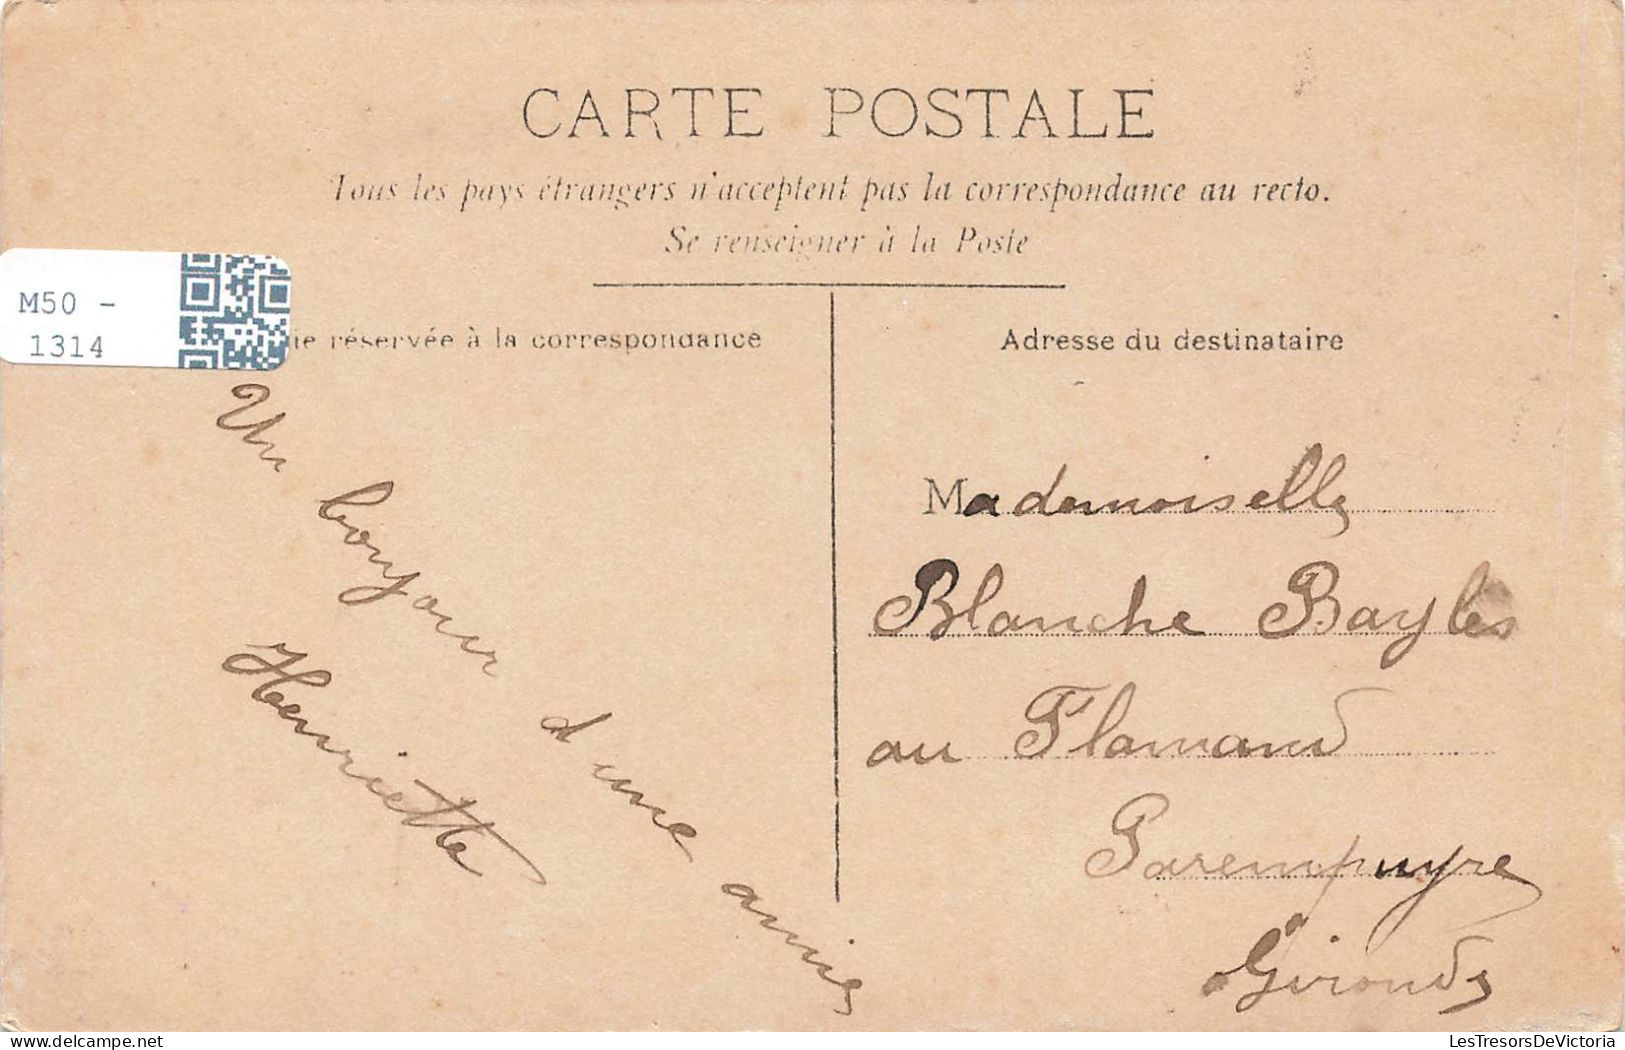 CARTE POSTALE
Tous les pays étrangers n'acceptent pas la correspondance au recto.
Se renseigner à la Poste
M50 -
1314
ie réservée à la correspondance
Adresse du destinataire
Un bonjour d'une amie
Henriette
Mademoiselle
Blanche Bayles
au Flamand
Parempuyre
Gironde
LesTresorsDeVictoria